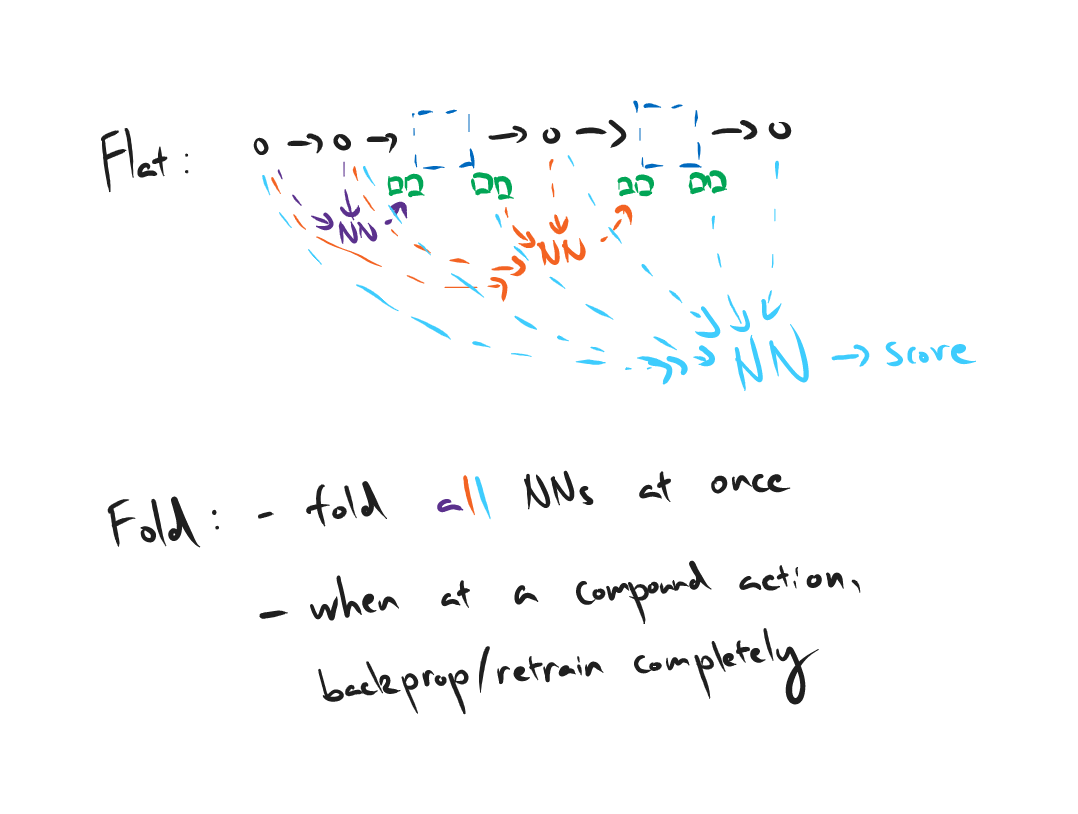 Flat:
NN
NN
NN → score
Fold: - fold all NNs at once
- when at a compound action,
backprop/retrain completely